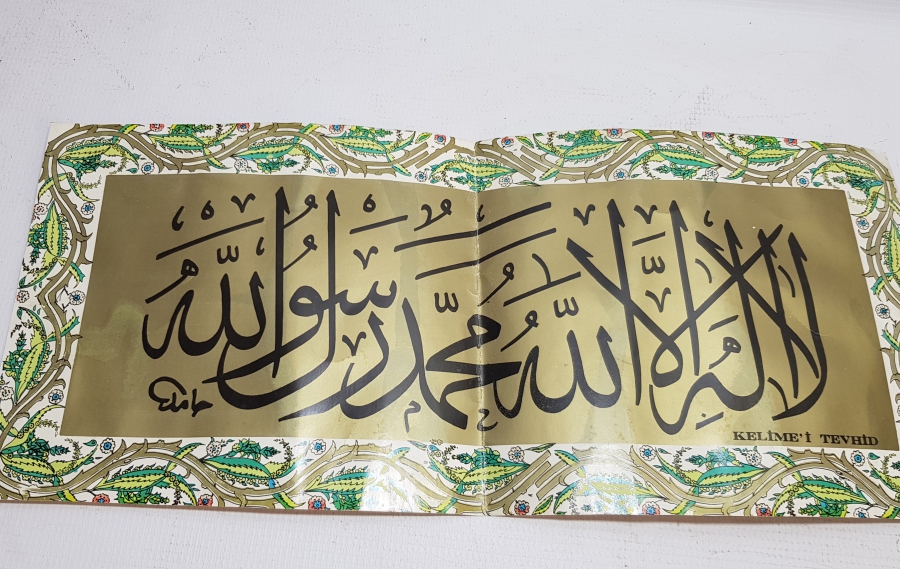 لا اله الا الله محمد رسول الله
حامد
KELİME'İ TEVHİD